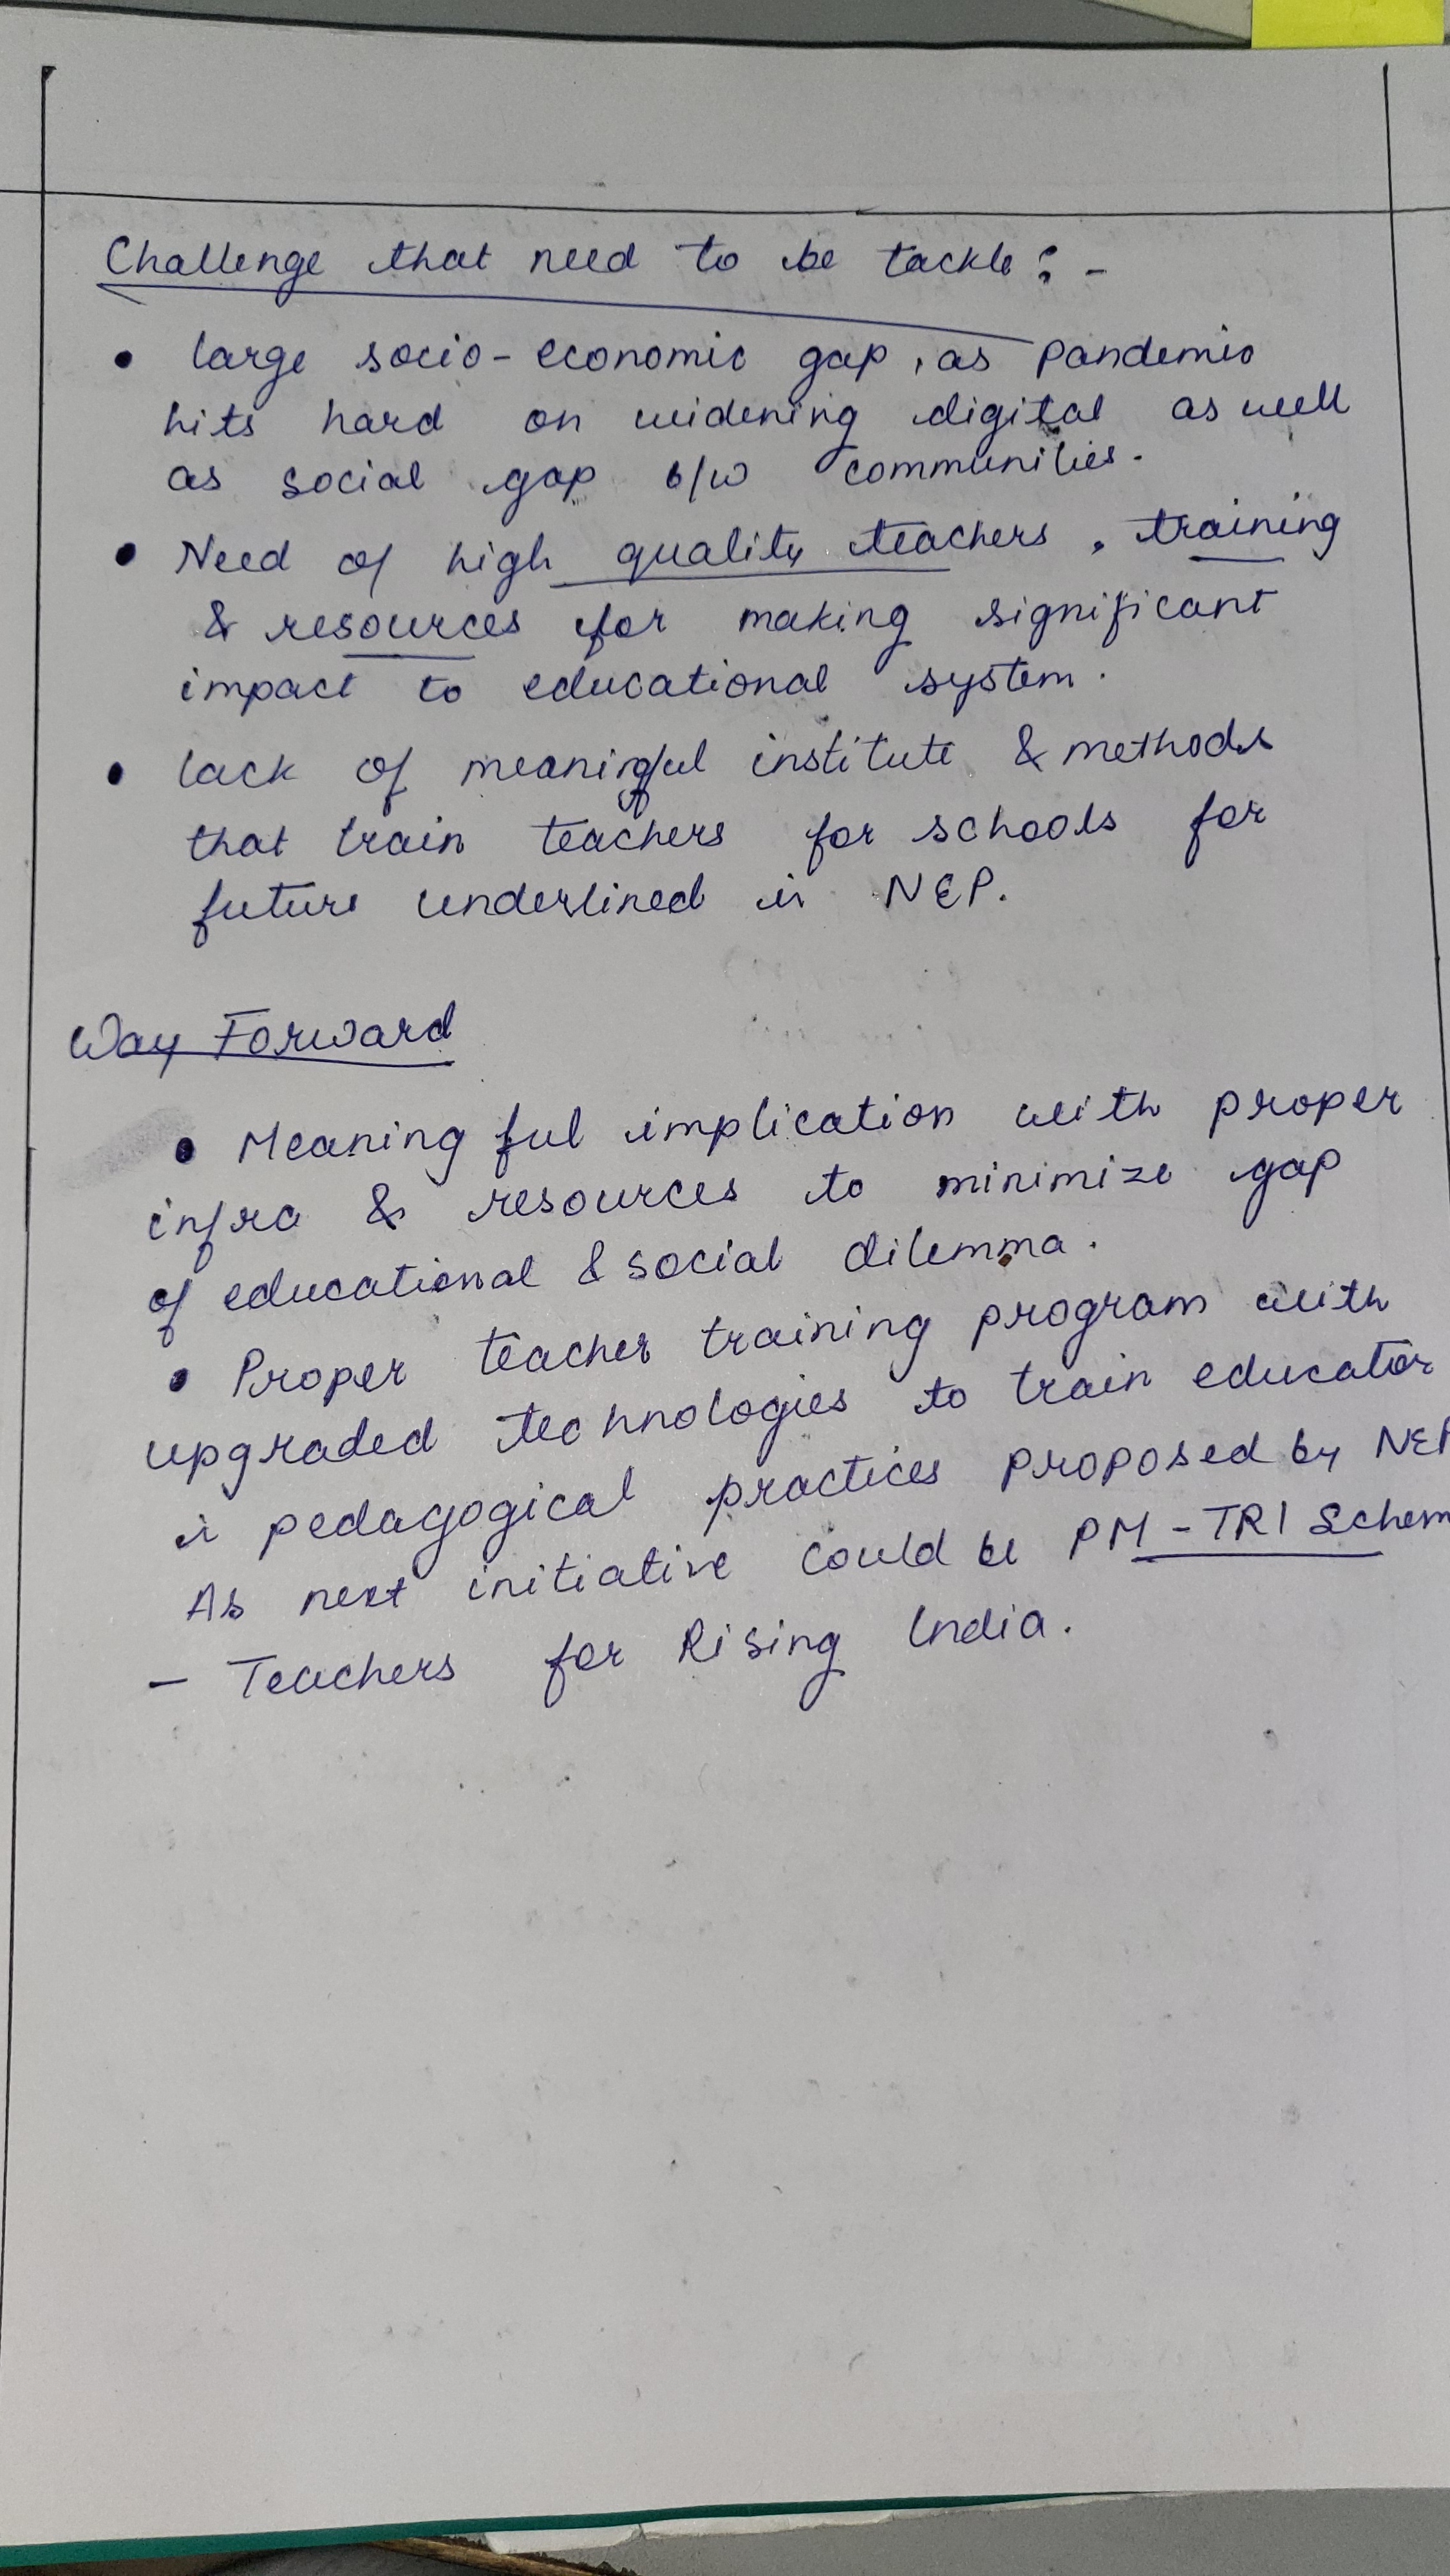 Challenge that need to be tackle : -
• large socio-economic gap, as pandemic
hits hard on widening digital as well
as social gap b/w communities.
• Need of high quality teachers, training
& resources for making significant
impact to educational system.
• lack of meaningful institute & methods
that train teachers for schools for
future underlined in NEP.
Way Forward
• Meaningful implication with proper
infra & resources to minimize gap
of educational & social dilemma.
• Proper teacher training program with
upgraded technologies to train educator
in pedagogical practices proposed by NEP
As next initiative could be PM-TRI Schem
- Teachers for Rising India.